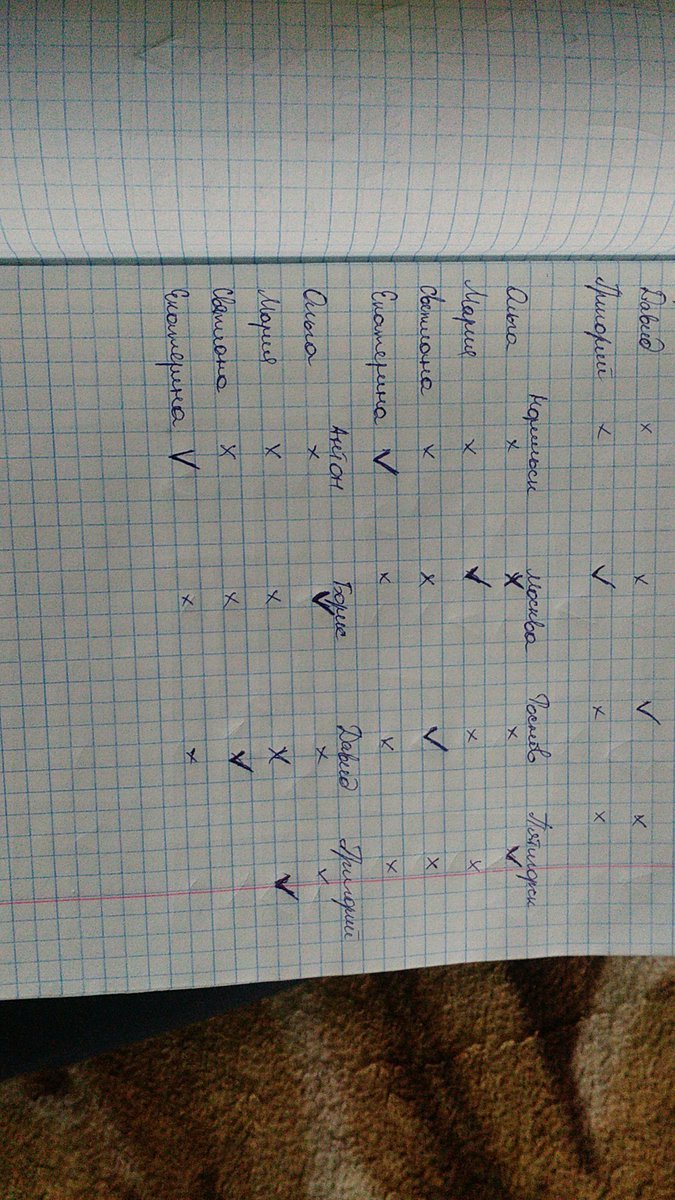 Давид × × ✓ ×
Григорий × ✓ × ×
Норильск Москва Ростов Пятигорск
Ольга × × × ✓
Мария × ✓ × ×
Светлана × × ✓ ×
Екатерина ✓ × × ×
Антон Борис Давид Григорий
Ольга × ✓ × ×
Мария × × × ✓
Светлана × × ✓
Екатерина ✓ × ×